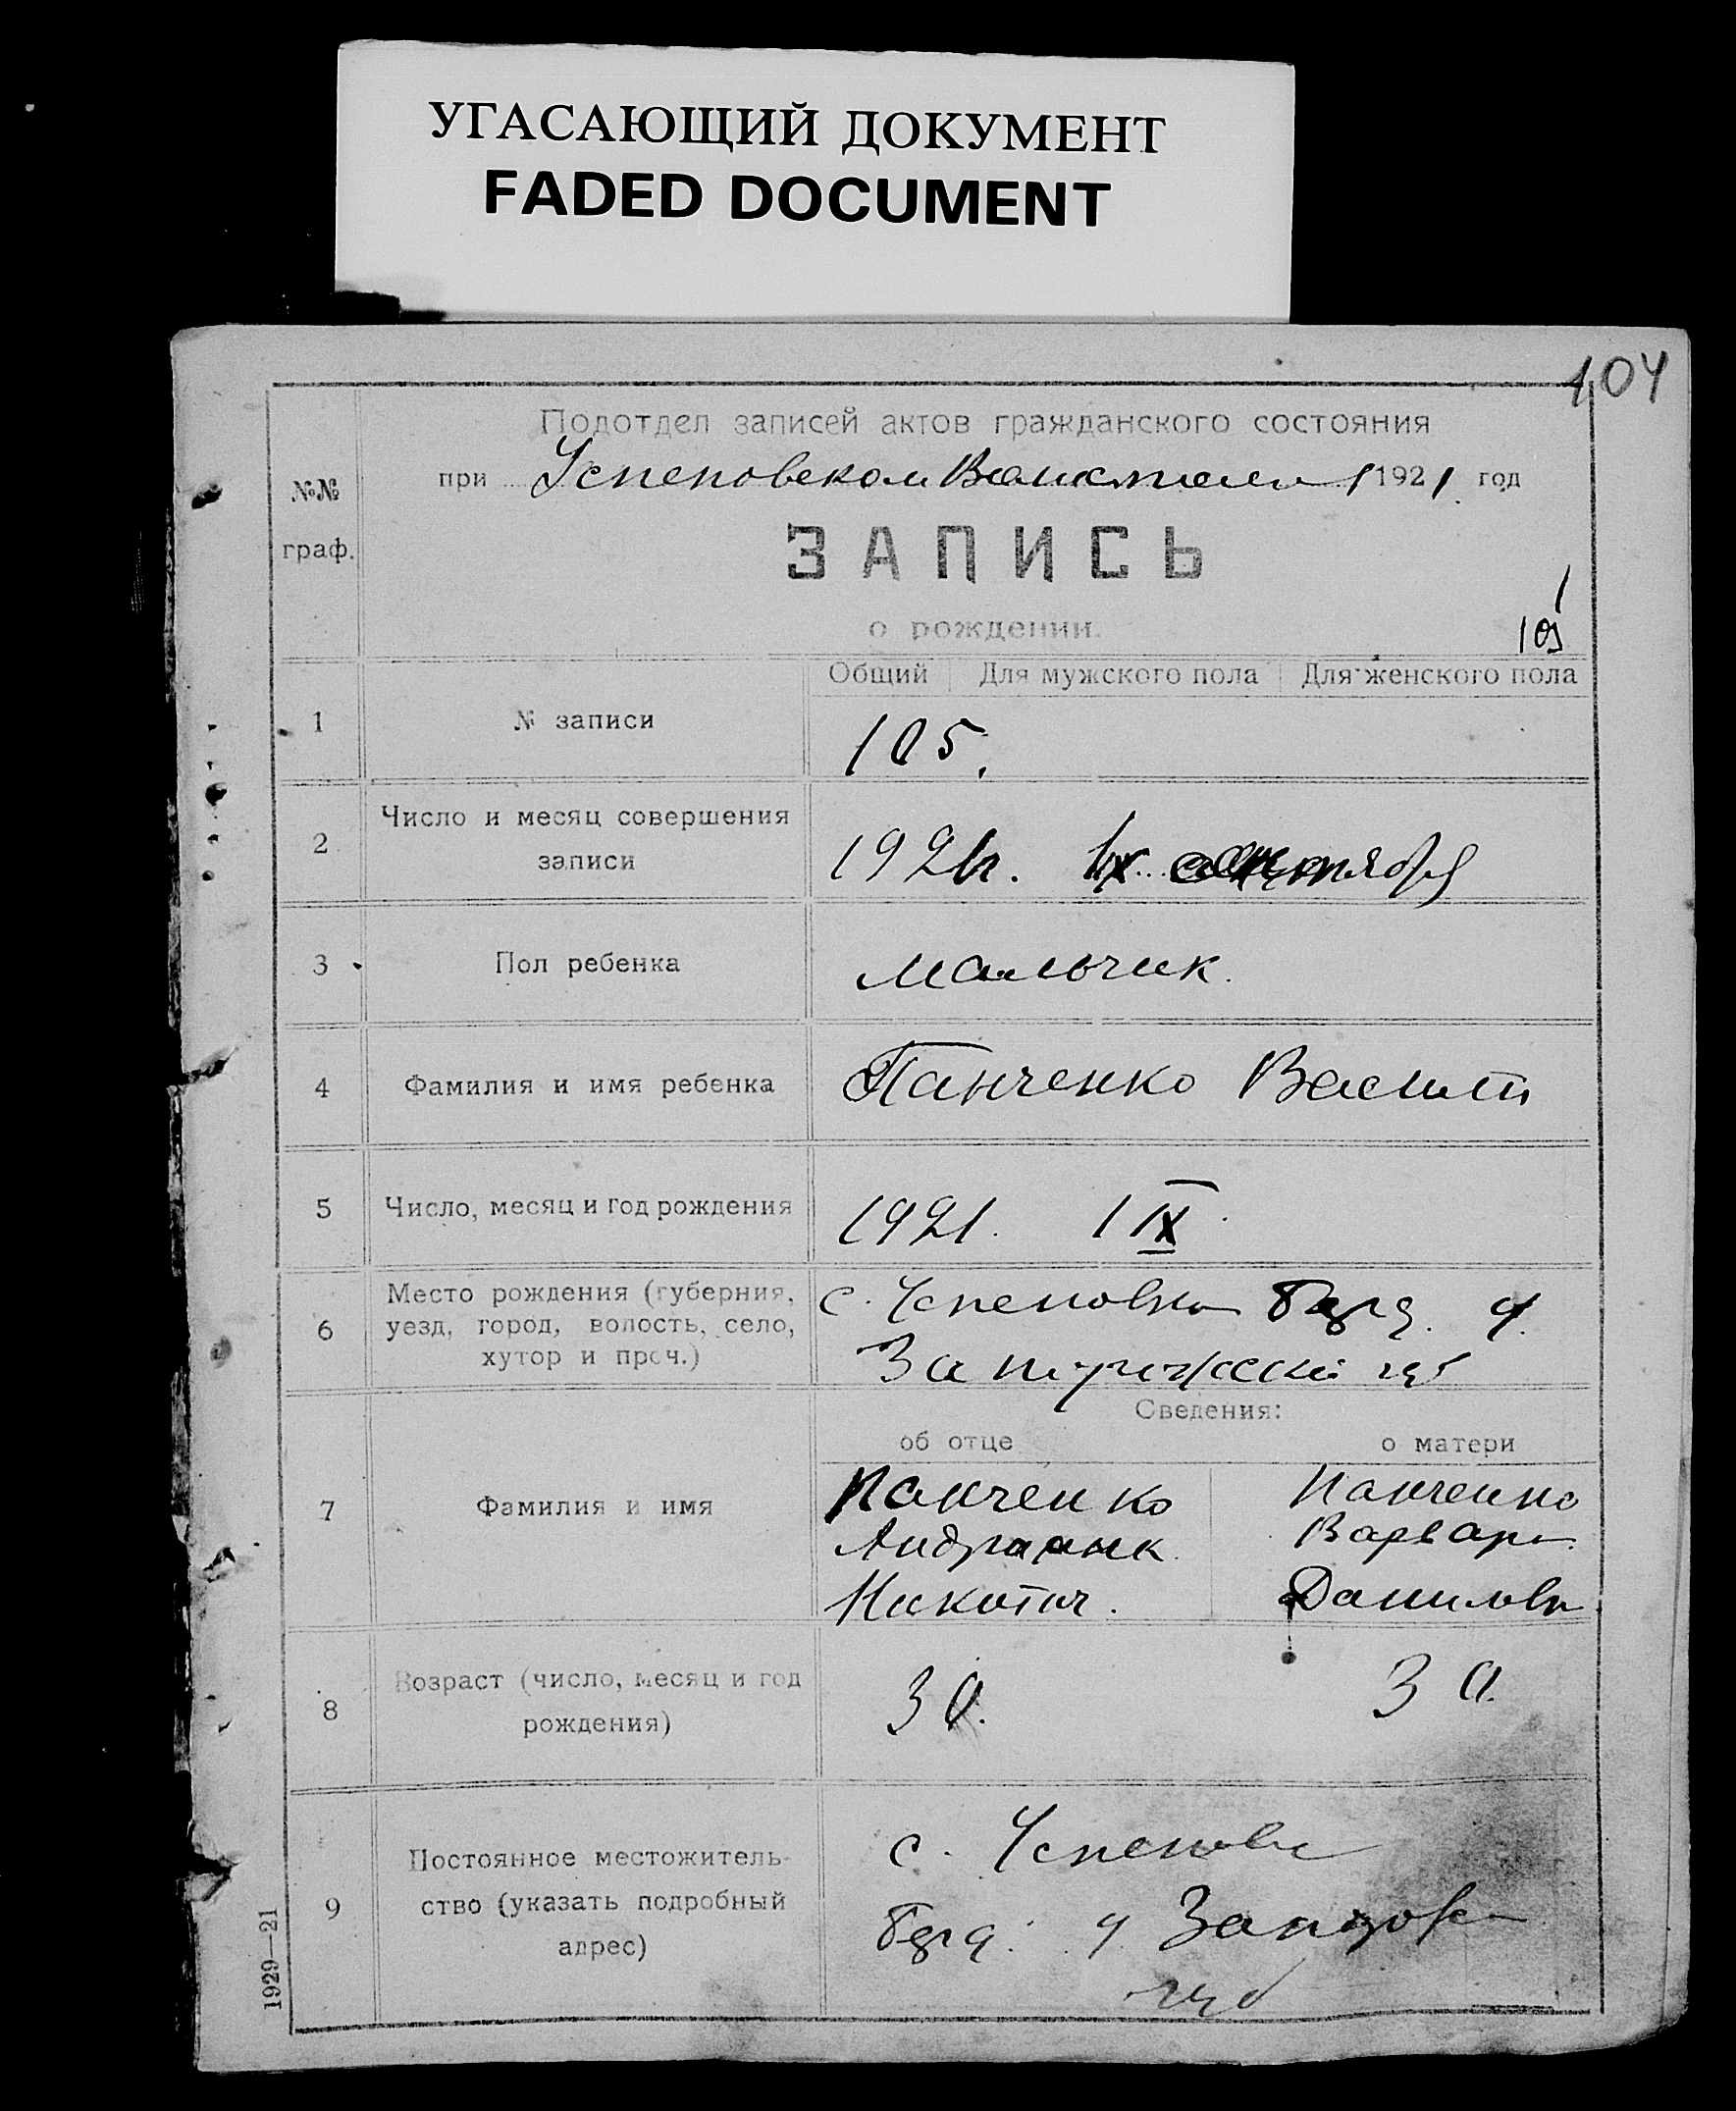 УГАСАЮЩИЙ ДОКУМЕНТ
FADED DOCUMENT
104
Подотдел записей актов гражданского состояния
при Успеновском 1921 год
№№
граф.
ЗАПИСЬ
о рождении.
Общий Для мужского пола Для женского пола
1 № записи 105.
2 Число и месяц совершения
записи
192 IX
3 Пол ребенка мальчик.
4 Фамилия и имя ребенка Панченко Василий
5 Число, месяц и год рождения 1921. 1 IX
6 Место рождения (губерния,
уезд, город, волость, село,
хутор и проч.)
с. Успеновка у.
губ
Сведения:
об отце о матери
7 Фамилия и имя
Панченко Панченко
Варвара
Никитич. Данилов
8 Возраст (число, месяц и год
рождения)
30. 30.
9 Постоянное местожитель-
ство (указать подробный
адрес)
с. Успеновк
у. Запорож
губ
1929—21